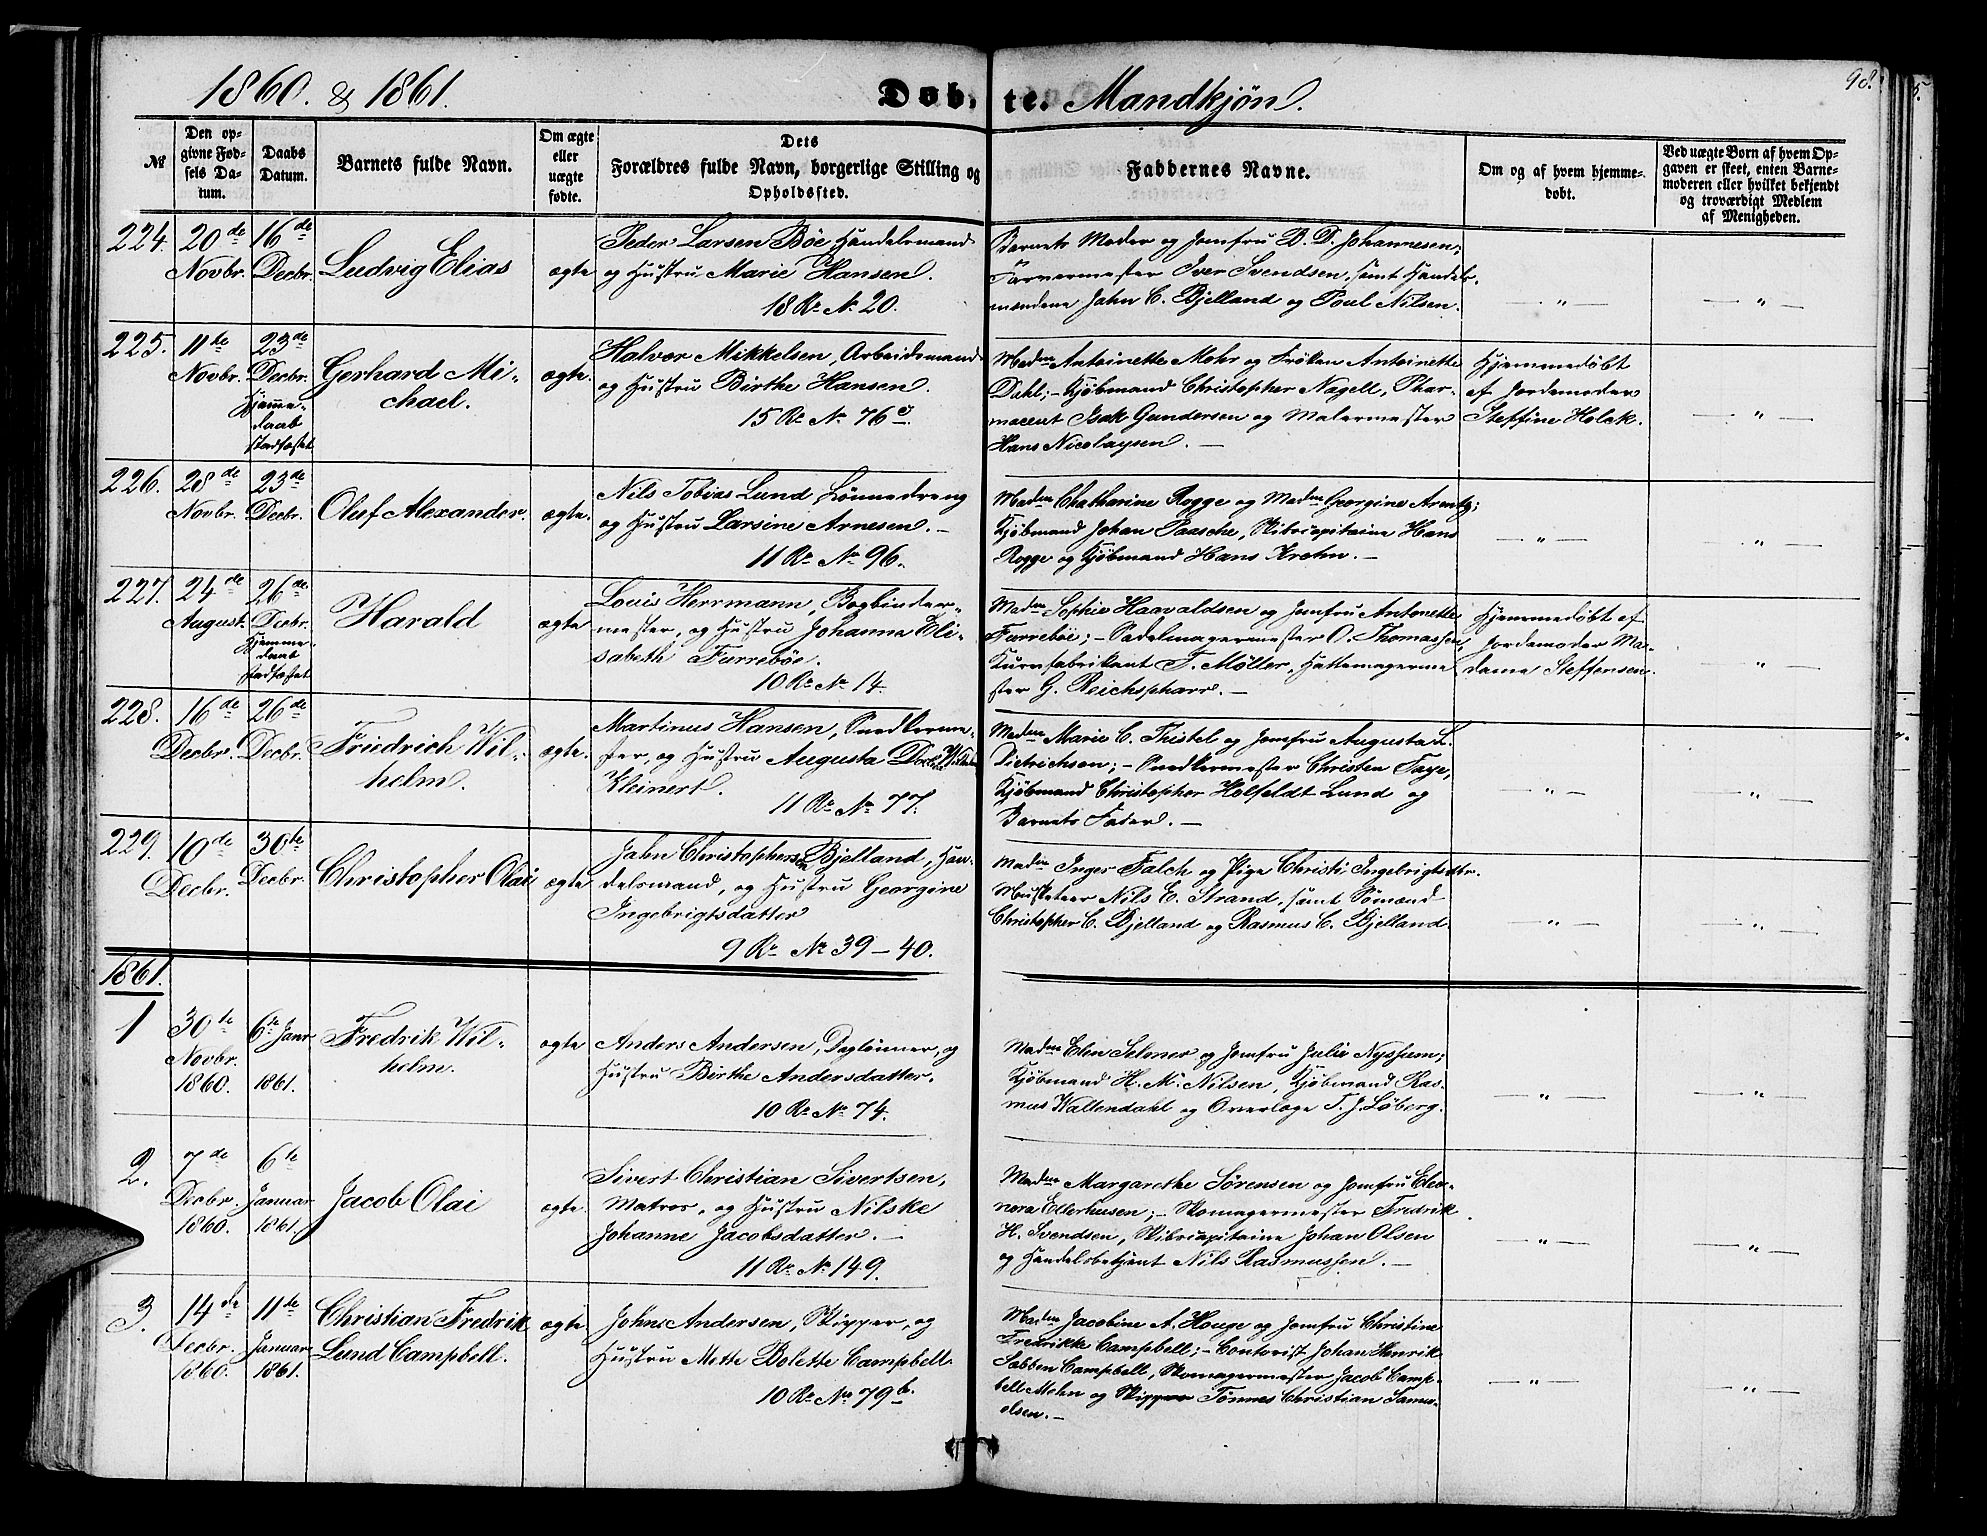 1860. & 1861. Døb- te. Mandkjøn. 98.
№
Den op-
givne Fød-
sels Da-
tum.
Daabs
Datum.
Barnets fulde Navn.
Om ægte
eller
uægte
fødte.
Dets
Forældres fulde Navn, borgerlige Stilling og
Opholdssted.
Faddernes Navne.
Om og af hvem hjemme-
døbt.
Ved uægte Børn af hvem Op-
gaven er skeet, enten Barne-
moderen eller hvilket bekjendt
og troværdigt Medlem
af Menigheden.
224. 20de
Novbr.
16de
Decbr.
Ludvig Elias
ægte
Peder Larsen Bøe Handelsmand
og Hustru Marie Hansen.
18 Re № 20.
Barnets Moder og Jomfru B. D. Johannesen;
Farvermester Iver Svendsen, samt Handels-
mændene John C. Bjelland og Poul Nilsen.
— " —
— " —
225. 11de
Novbr.
23de
Decbr.
Hjemme-
daab
stadfæstet
Gerhard Mi-
chael.
ægte.
Halvor Mikkelsen, Arbeidsmand
og Hustru Birthe Hansen.
15 Re № 76c.
Madme Antoinette Mohr og Frøken Antoinette
Dahl; - Kjøbmand Christopher Nagell, Phar-
maceut Isak Gundersen og Malermester
Hans Nicolaysen. —
Hjemmedøbt
af Jordemoder
Steffine Holck.
— " —
226. 28de
Novbr.
23de
Decbr.
Oluf Alexander.
ægte.
Nils Tobias Lund Lønnedreng
og Hustru Larsine Arnesen. —
11 Re № 96.
Madme Chatharine Rogge og Madme Georgine Arentz;
Kjøbmand Johan Paasche, Skibscapitaine Hans
Rogge og Kjøbmand Hans Krohn. —
— " —
— " —
227. 24de
August.
26de
Decbr.
Hjemme-
daab
stadfæstet
Harald
ægte
Louis Herrmann, Bogbinder-
mester, og Hustru Johanna Eli-
sabeth Furrebøe.
10 Re № 14.
Madme Sophie Haavaldsen og Jomfru Antonette
Furrebøe; - Sadelmagermester O. Thomassen,
Kurvfabrikant F. Møller, Hattemagerme
ster G. Reichspharr. —
Hjemmedøbt af
Jordemoder Ma-
dame Steffensen.
— " —
228. 16de
Decbr.
26de
Decbr.
Friedrich Wil-
helm.
ægte.
Martinus Hansen, Snedkerme-
ster, og Hustru Augusta
Kleinert.
11 Re № 77.
Madme Marie C. Thistel og Jomfru Augusta L.
Dietrichsen; - Snedkermester Christen Faye,
Kjøbmand Christopher Holfeldt Lund og
Barnets Fader. —
— " —
— " —
229. 10de
Decbr.
30te
Decbr.
Christopher Olai
ægte
John Christophersen Bjelland, Han-
delsmand, og Hustru Georgine
Ingebrigtsdatter
9 Re № 39-40.
Madme Inger Falch og Pige Christi Ingebrigtsdtr.
Musketeer Nils E. Strand, samt Sømænd
Christopher C. Bjelland og Rasmus C. Bjelland.
— " —
— " —
1861.
1
30te
Novbr.
1860.
6te Janr
1861.
Fredrik Wil-
helm.
ægte
Anders Andersen, Daglønner, og
Hustru Birthe Andersdatter.
10 Re № 74.
Madme Elen Selmer og Jomfru Julie Nyhum;
Kjøbmand H. M. Nilsen, Kjøbmand Ras-
mus Waltendahl og Overlæge T. J. Løberg.
— " —
— " —
2.
7de
Decbr.
1860.
6te
Januar
1861.
Jacob Olai
ægte.
Sivert Christian Sivertsen,
Matros, og Hustru Nilske
Johanne Jacobsdatter. —
11 Re № 149.
Madme Margarethe Sørensen og Jomfru Eleo-
nora Ellerhusen; - Skomagermester Fredrik
H. Svendsen, Skibscapitaine Johan Olsen
og Handelsbetjent Nils Rasmussen. —
— " —
— " —
3.
14de
Decbr.
1860.
11de
Januar
1861.
Christian Fredrik
Lund Campbell.
ægte
Johns Andersen, Skipper, og
Hustru Mette Bolette Campbell.
10 Re № 79b.
Madme Jacobine A. Houge og Jomfru Christine
Fredrikke Campbell; - Contorist Johan Henrik
Sabben Campbell, Skomagermester Jacob Camp-
bell Mehn og Skipper Tønnes Christian Samu-
elsen. —
— " —
— " —